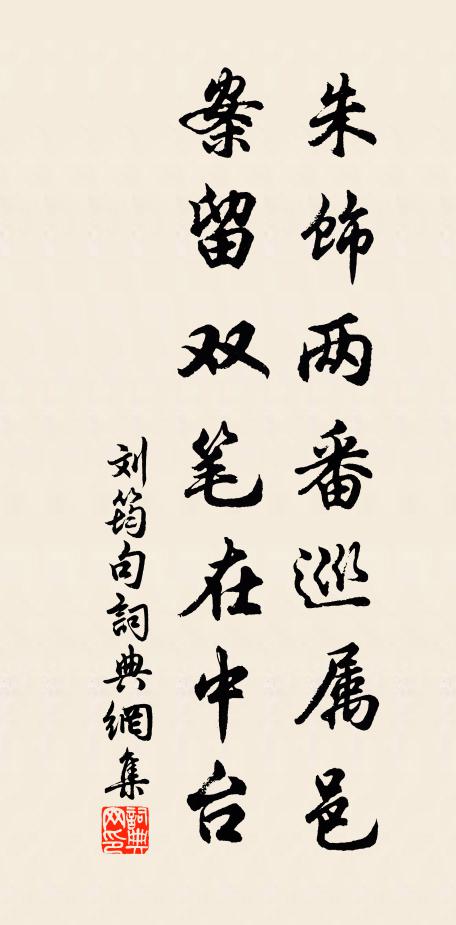 朱饰两番巡属邑
案留双笔在中台
刘筠句詞典網集
詞典网印